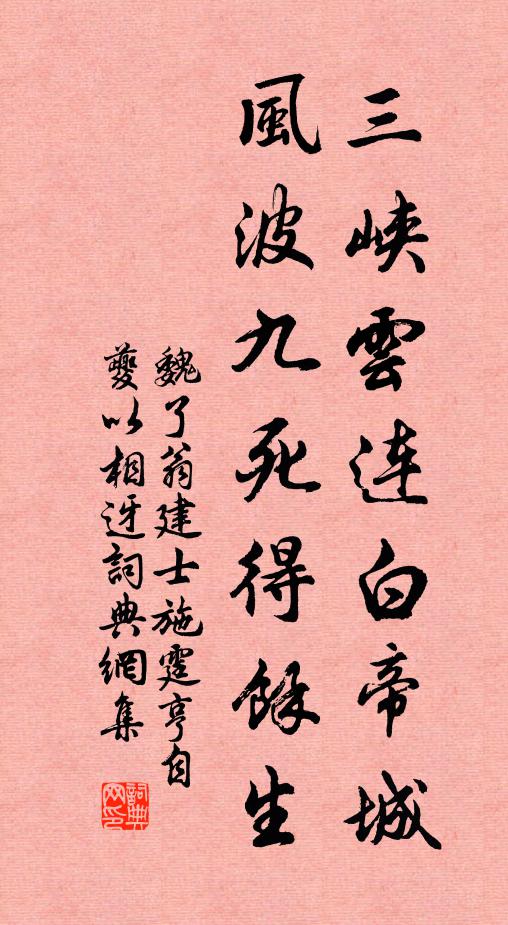 三峡雲连白帝城
風波九死得餘生
魏了翁建士施霆亨自
夔以相迓詞典網集
詞典
网印